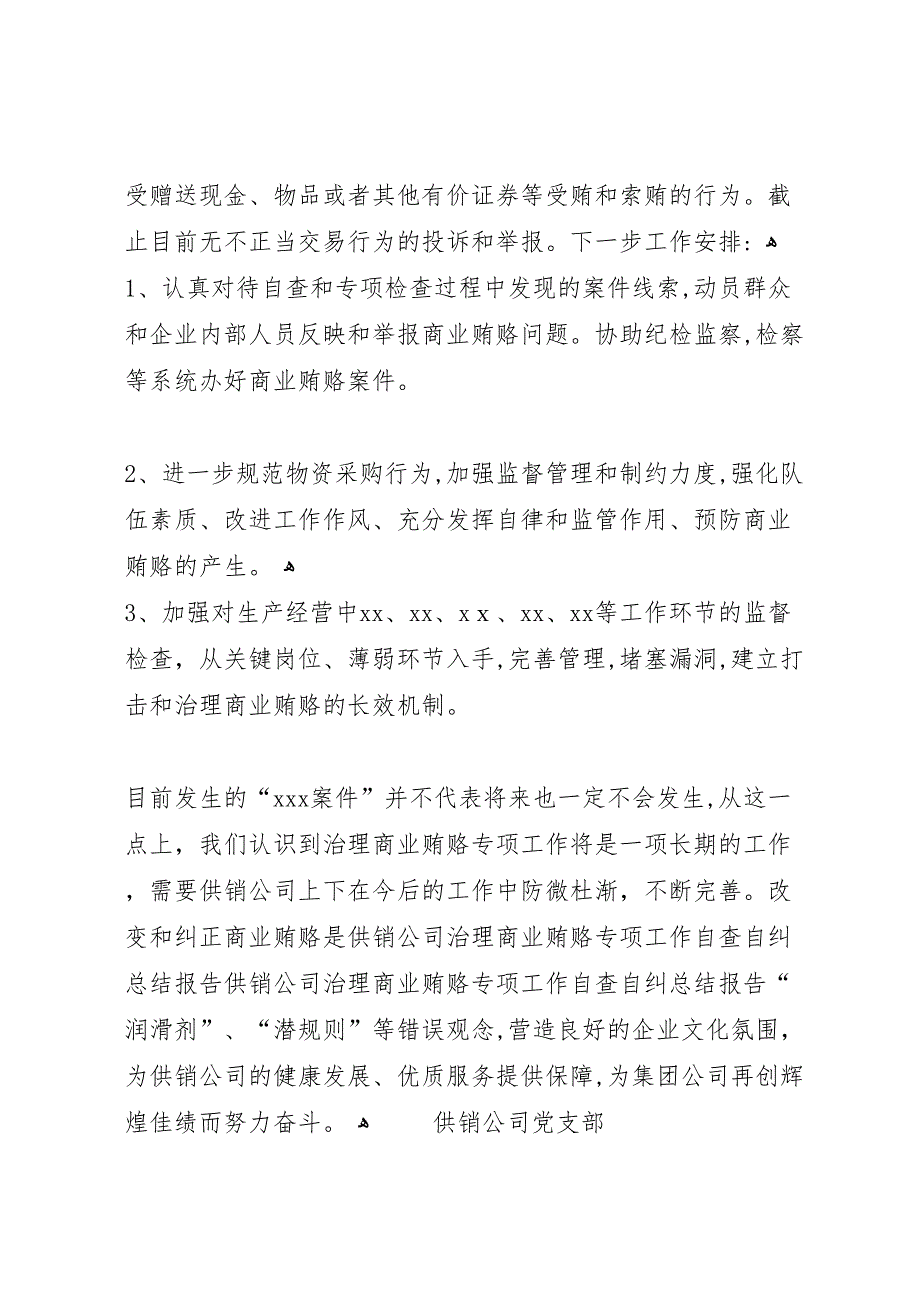 受赠送现金、物品或者其他有价证券等受贿和索贿的行为。截
止目前无不正当交易行为的投诉和举报。下一步工作安排: ﻫ
1、认真对待自查和专项检查过程中发现的案件线索,动员群众
和企业内部人员反映和举报商业贿赂问题。协助纪检监察,检察
等系统办好商业贿赂案件。
2、进一步规范物资采购行为,加强监督管理和制约力度,强化队
伍素质、改进工作作风、充分发挥自律和监管作用、预防商业
贿赂的产生。 ﻫ
3、加强对生产经营中xx、xx、xｘ、xx、xx等工作环节的监督
检查，从关键岗位、薄弱环节入手,完善管理,堵塞漏洞,建立打
击和治理商业贿赂的长效机制。
目前发生的“xxx案件”并不代表将来也一定不会发生,从这一
点上，我们认识到治理商业贿赂专项工作将是一项长期的工作
，需要供销公司上下在今后的工作中防微杜渐，不断完善。改
变和纠正商业贿赂是供销公司治理商业贿赂专项工作自查自纠
总结报告供销公司治理商业贿赂专项工作自查自纠总结报告“
润滑剂”、“潜规则”等错误观念,营造良好的企业文化氛围，
为供销公司的健康发展、优质服务提供保障,为集团公司再创辉
煌佳绩而努力奋斗。 ﻫ 供销公司党支部